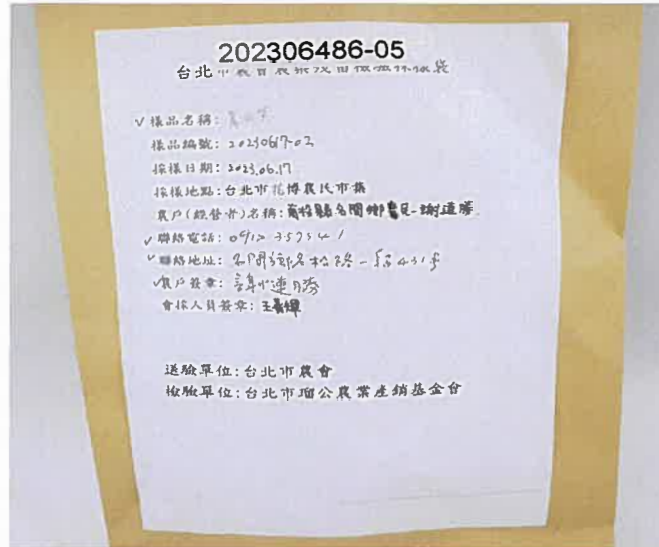 202306486-05
台北市農會農業及
✓樣品名稱:
樣品編號: 20230617-02
採樣日期: 2023.06.17
採樣地點: 台北市花博農民市集
農戶(經營者)名稱: 南投縣名間鄉農民-謝連勝
✓聯絡電話:
✓聯絡地址: 名間鄉名松路一段431號
✓農戶簽章: 謝連勝
會採人員簽章:
送驗單位: 台北市農會
檢驗單位: 台北市瑠公農業產銷基金會